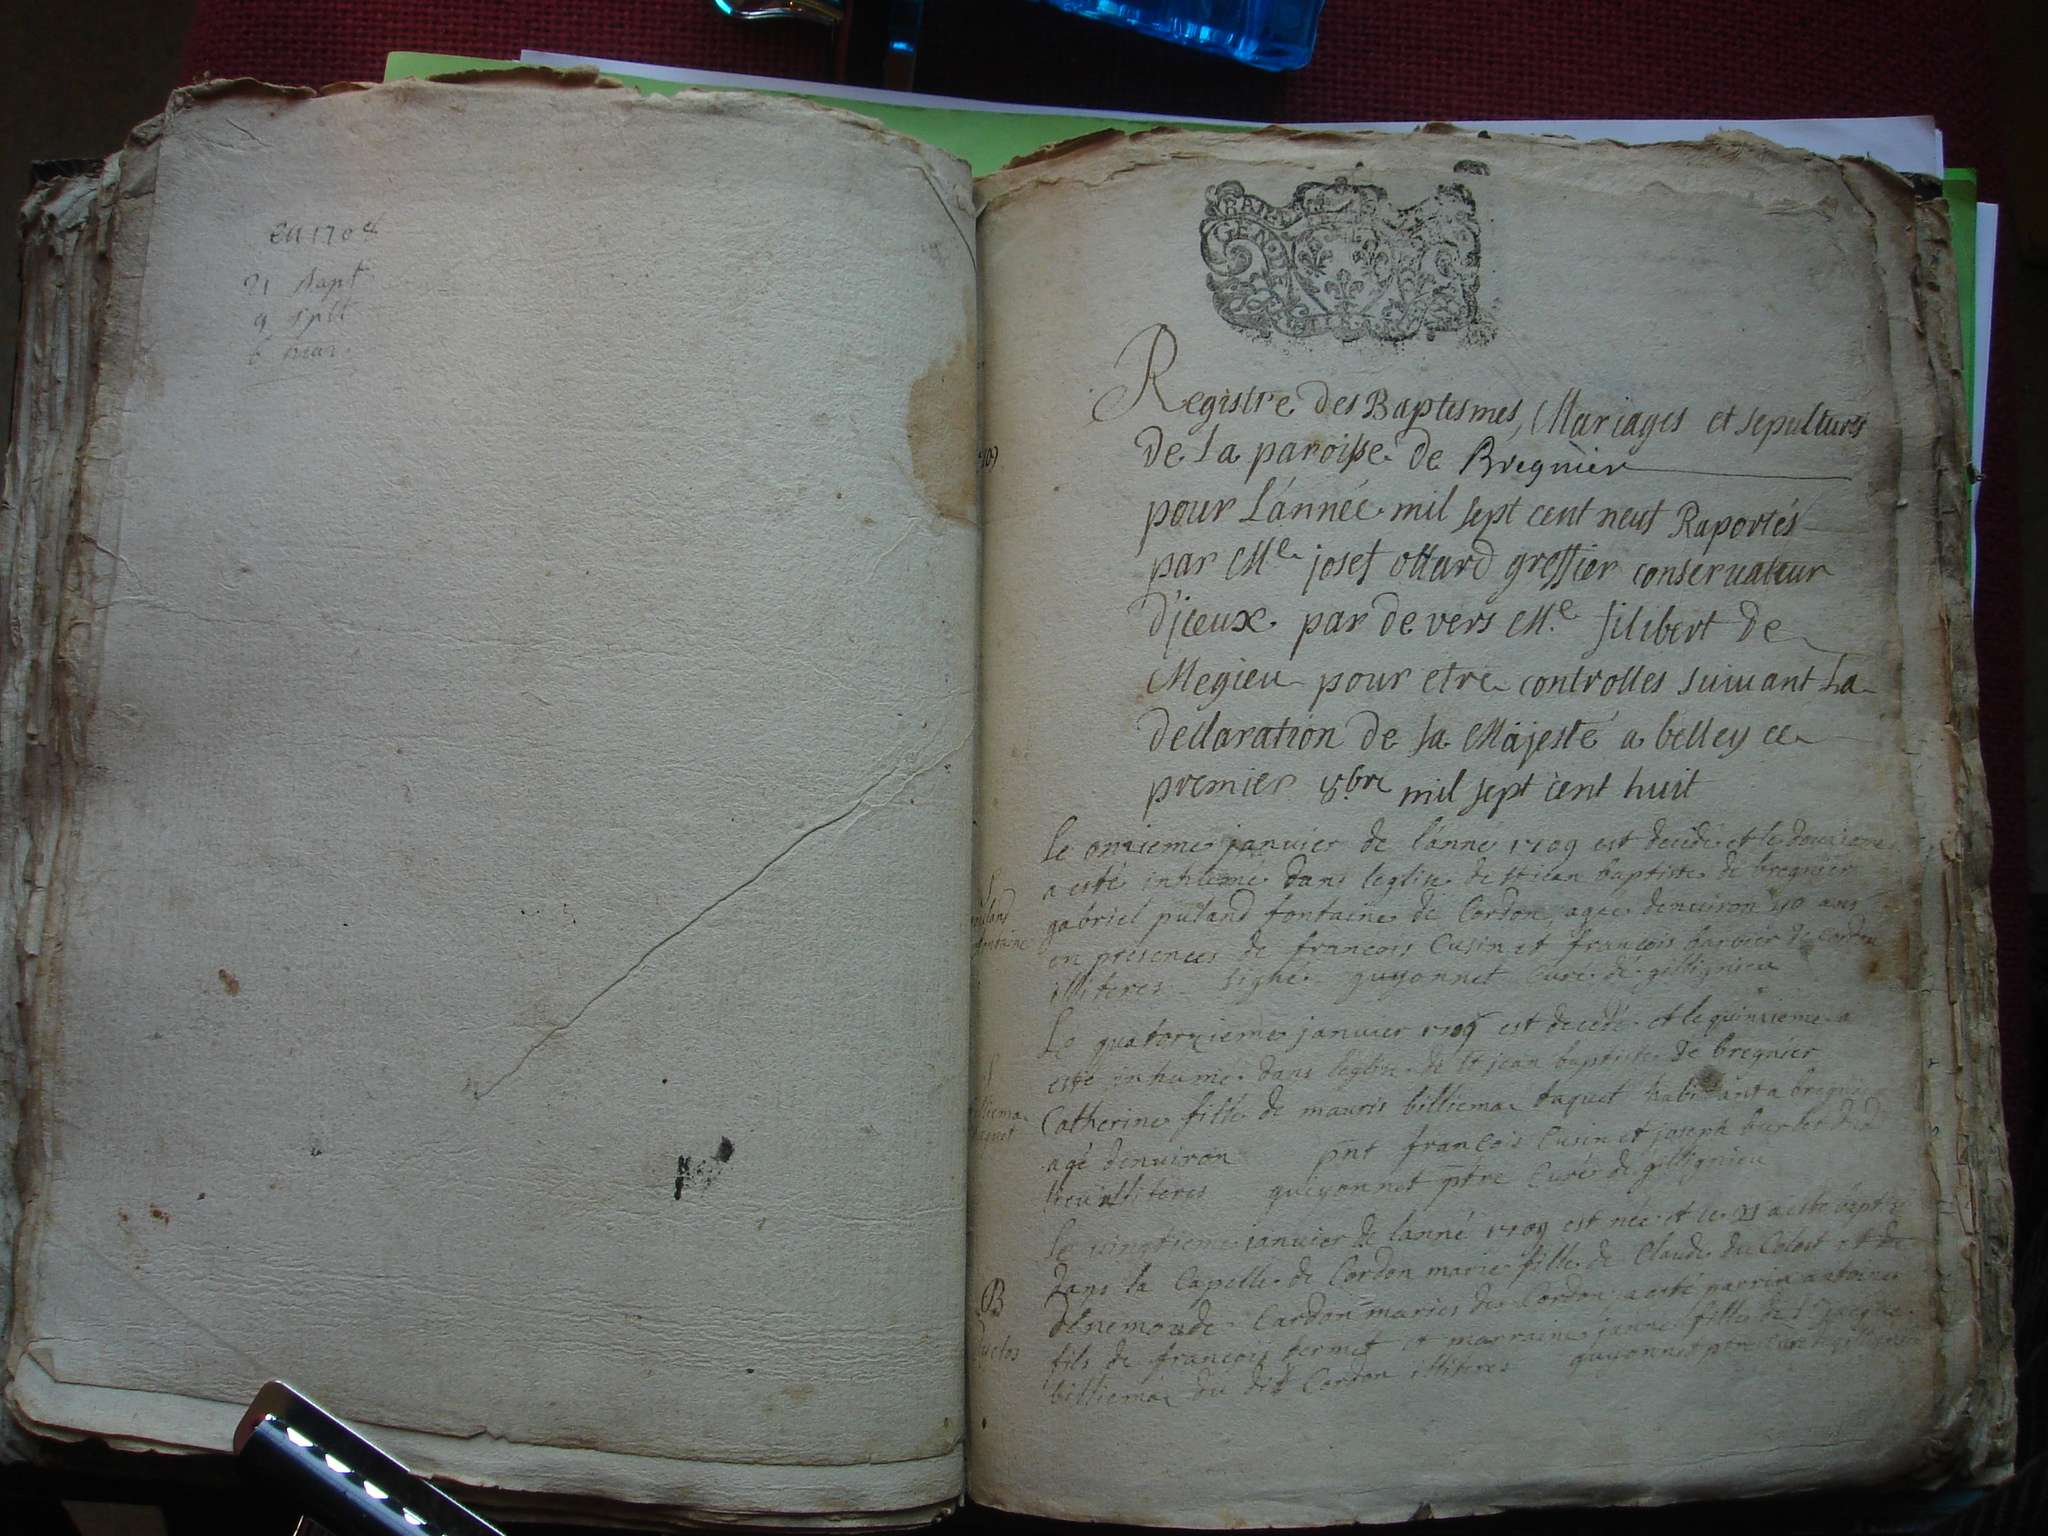 en 1708
21 bapt
9 splt
6 mar.
GEN
Registre des Baptesmes, Mariages et sepultures
de la paroisse de Bregnier
pour L'année mil sept cent neuf Raportés
par Me josef ottard greffier conservateur
d'jceux par devers Me filibert de
Megieu pour etre controlles suivant La
declaration de sa Majesté a belley ce
premier 8bre mil sept cent huit
le onzieme janvier de l'anné 1709 est decedé et le douzieme
a esté inhumé dans leglise de st jean baptiste de bregnier
gabriel puland fontaine de Cordon, agee denviron 40 ans
en presences de francois Cusin et françois barbier de cordon
illiteres signe guyonnet Curé de gillignieu
Le quatorzieme janvier 1709 est decedé et le quinzieme a
esté inhumé dans leglise de st jean baptiste de bregnier
Catherine fille de mauris billiema taquet habitant a bregnier
agé denviron pnt francois Cusin et joseph barbier dud
lieu illiteres guyonnet ptre Curé de gillignieu
le vingtieme janvier de lanné 1709 est née et le 21 a esté baptisé
dans la Capelle de Cordon marie fille de Claude du Colost et de
denemonde Cardon maries de Cordon a esté parrin antoine
fils de françois termet et marraine janne fille de jacque
billiema du dit Cordon illiteres guyonnet ptre Curé
puland
fontaine
S
billiema
taquet
B
duclos